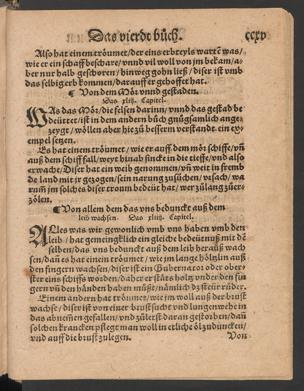 Das vierdt büch. ccxv
Also hat einem tröumet/der eins erbteyls wartē was/
wie er ein schaff beschäre/vnnd vil woll von jm bekam/a-
ber nur halb geschoren/hinweg gohn ließ/diser ist vmb
das selbig erb kommen/darauff er gehoffet hat.
¶ Von dem Mör vnnd gestaden.
Das xliij. Capitel.
WAs das Mör/die felsen darinn/vnnd das gestad be
deüttet/ist in dem andern büch gnügsamlich ange-
zeygt/wöllen aber hie zü besserm verstandt ein ex-
empel setzen.
Es hat einem tröumet/wie er auff dem mör schiffe/vñ
auß dem schiff fall/weyt hinab sincke in die tieffe/vnd also
erwache/Diser hat ein weib genommen/vñ weit in fremb
de land mit jr gezogen/sein narung zusüchen/vrsach/wa
rumb im solches diser troum bedeüt hat/wer zü lang züer-
zölen.
¶ Von allem dem das vns bedunckt auß dem
leib wachsen. Das xliiij. Capitel.
ALles was wir gewonlich vmb vns haben vmb den
leib/hat gemeinglich ein gleiche bedeütnuß mit dē
selben/das vns bedunckt auß dem leib herauß wach
sen/dañ es hat einem tröumet/wie jm lange höltzlin auß
den fingern wachsen/diser ist ein Gubernator oder ober-
ster eins schiffs worden/daher er stäts holtz vnder den fin
gern vñ den händen haben müste/nämlich dz steür rüder.
Einem andern hat tröumet/wie jm woll auß der brust
wachse/diser ist von einer brustsucht vnd lungenwehe in
das abnemen gefallen/vnd zülerst daran gestorben/dañ
solchen krancken pflegt man woll in etliche öl zu duncken/
vnd auff die brust zulegen.
Von